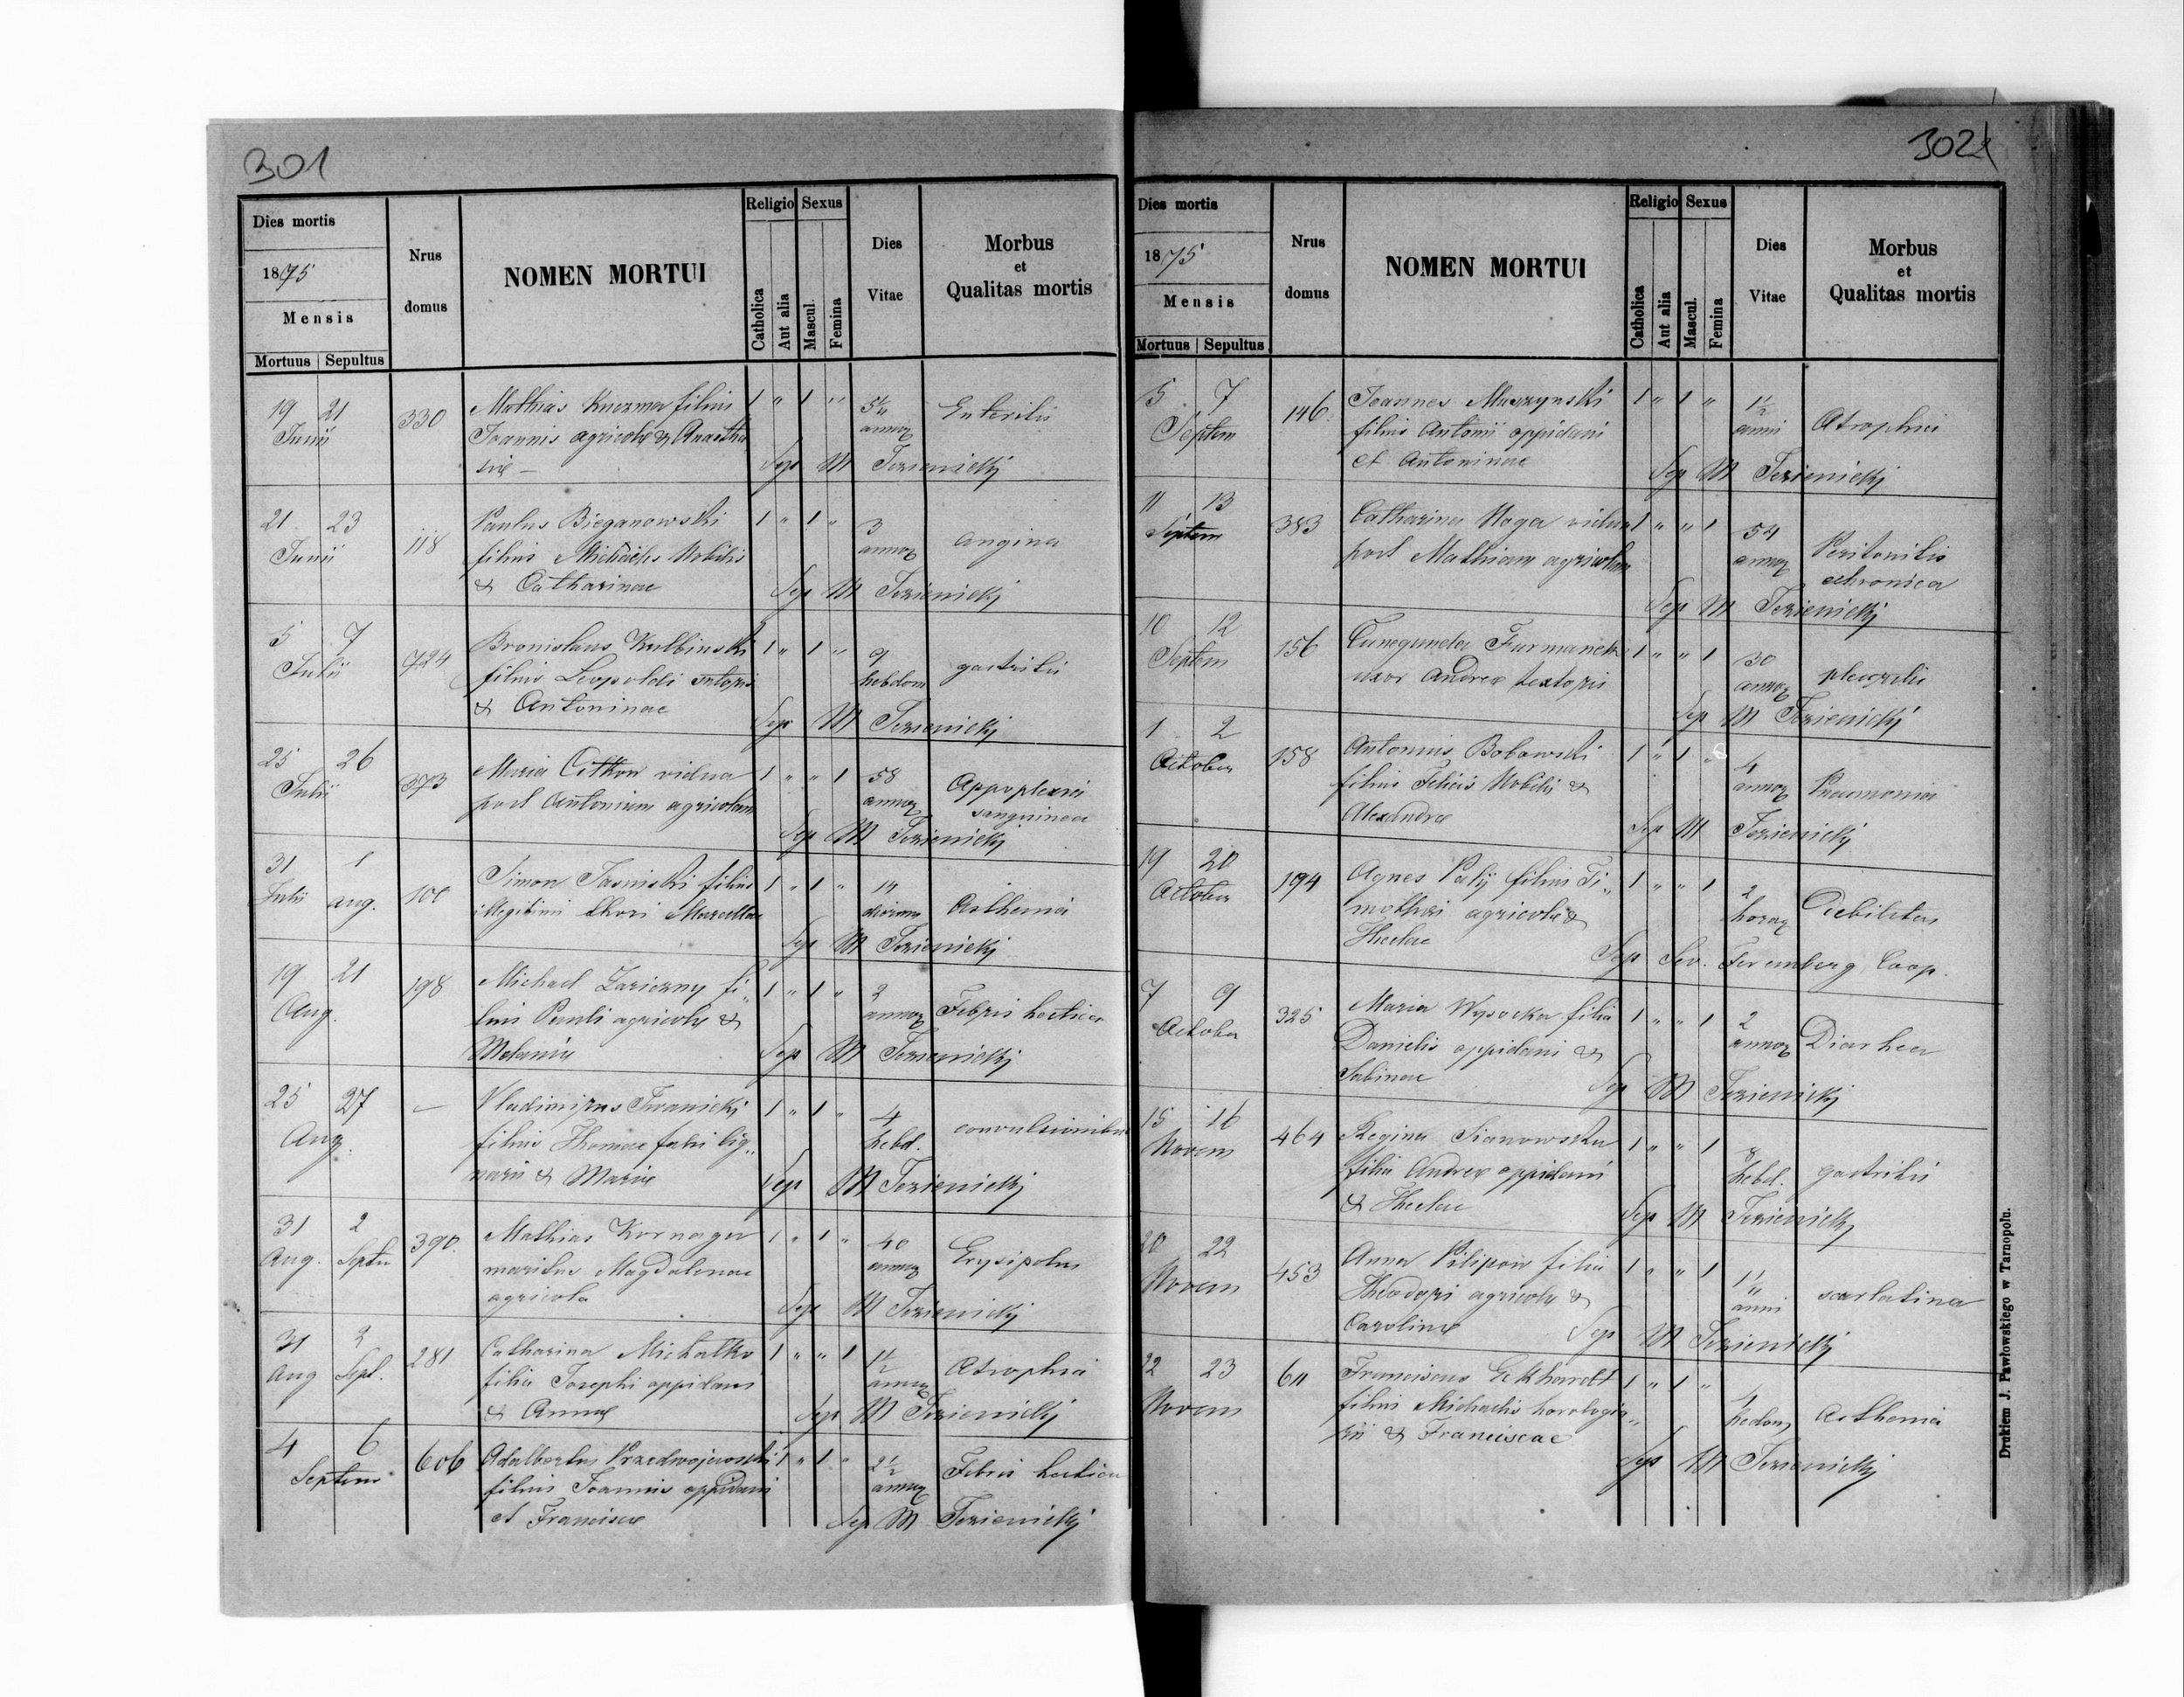 301
Dies mortis
1875
Mensis
Mortuus Sepultus
Nrus domus
NOMEN MORTUI
Religio
Catholica
Aut alia
Sexus
Mascul.
Femina
Dies Vitae
Morbus et Qualitas mortis
19 21 330 Mathias filius 1 " 1 " 5 Enteritis
Junii Joannis agricolæ & Anasta annor
siæ – Sep M
21 23 118 Paulus Bieganowski 1 " 1 " 3 angina
Junii filius Michaelis Nobilis annor
& Catharinae Sep M
5 7 724 Bronislaus Kulbinski 1 " 1 " 9 gastritis
Julii filius Leopoldi sutoris hebdom
& Antoninae Sep M
25 26 373 Maria vidua 1 " " 1 58 Appoplexia
Julii post Antonium agricolam annor sanguinea
Sep M
31 1 100 Simon Jasniski filius 1 " 1 " 14 Asthenia
Julii aug. illegitimi thori Marcellae dierum
Sep M
19 21 198 Michael Zariczny fi„ 1 " 1 " 2 Febris hectica
Aug. lius Pauli agricolæ & annor
Melaniæ Sep M
25 27 – Vladimirus Iwanicki 1 " 1 " 4 convulsionibus
Aug. filius Thomae fabri lig„ hebd.
narii & Mariæ Sep M
31 2 390. Mathias Kornaga 1 " 1 " 40 Erysipelas
Aug. Septe maritus Magdalenae annor
agricola Sep M
31 2 281 Catharina Michalko 1 " " 1 1½ Atrophia
Aug Sept. filia Josephi oppidani
& Annæ Sep M
4 6 606 Adalbertus Przedwojewski 1 " 1 " 2½ Febris hectica
Septem filius Joannis oppidani annor
et Franciscæ Sep M
302
Dies mortis
1875
Mensis
Mortuus Sepultus
Nrus domus
NOMEN MORTUI
Religio
Catholica
Aut alia
Sexus
Mascul.
Femina
Dies Vitae
Morbus et Qualitas mortis
5 7 146 Joannes Muszynski 1 " 1 " 1½ Atrophia
Septem filius Antonii oppidani anni
et Antoninae Sep M
11 13 383 Catharina Noga vidua 1 " " 1 54 Peritonitis
Septem post Mathiam agricolam annor chronica
Sep M
10 12 156 Cunegunda Furmanek 1 " " 1 30 pleuritis
Septem uxor Andreæ textoris annor
Sep M
1 2 158 Antonius Bobowski 1 " 1 " 4 Pneumonia
October filius Felicis Nobilis & annor
Alexandræ Sep M
19 20 194 Agnes filius Ti„ 1 " " 1 2 Debilitas
October mothei agricolæ & horar
Theclae Sep Sev. Feremberg Coop.
7 9 325 Maria Wysocka filia 1 " " 1 2 Diarhea
October Danielis oppidani & annor
Sabinae Sep M
15 16 464 Regina Sianowska 1 " " 1 8 gastritis
Novem filia Andreæ oppidani hebd.
& Theclae Sep M
20 22 453 Anna Pilipow filia 1 " " 1 scarlatina
Novem Theodori agricolæ & anni
Carolinæ Sep M
22 23 611 Franciscus Eckhardt 1 " 1 " 4 Asthenia
Novem filius Michaelis horologia„ hedom
rii & Franciscae
Sep M
Drukiem J. Pawłowskiego w Tarnopolu.